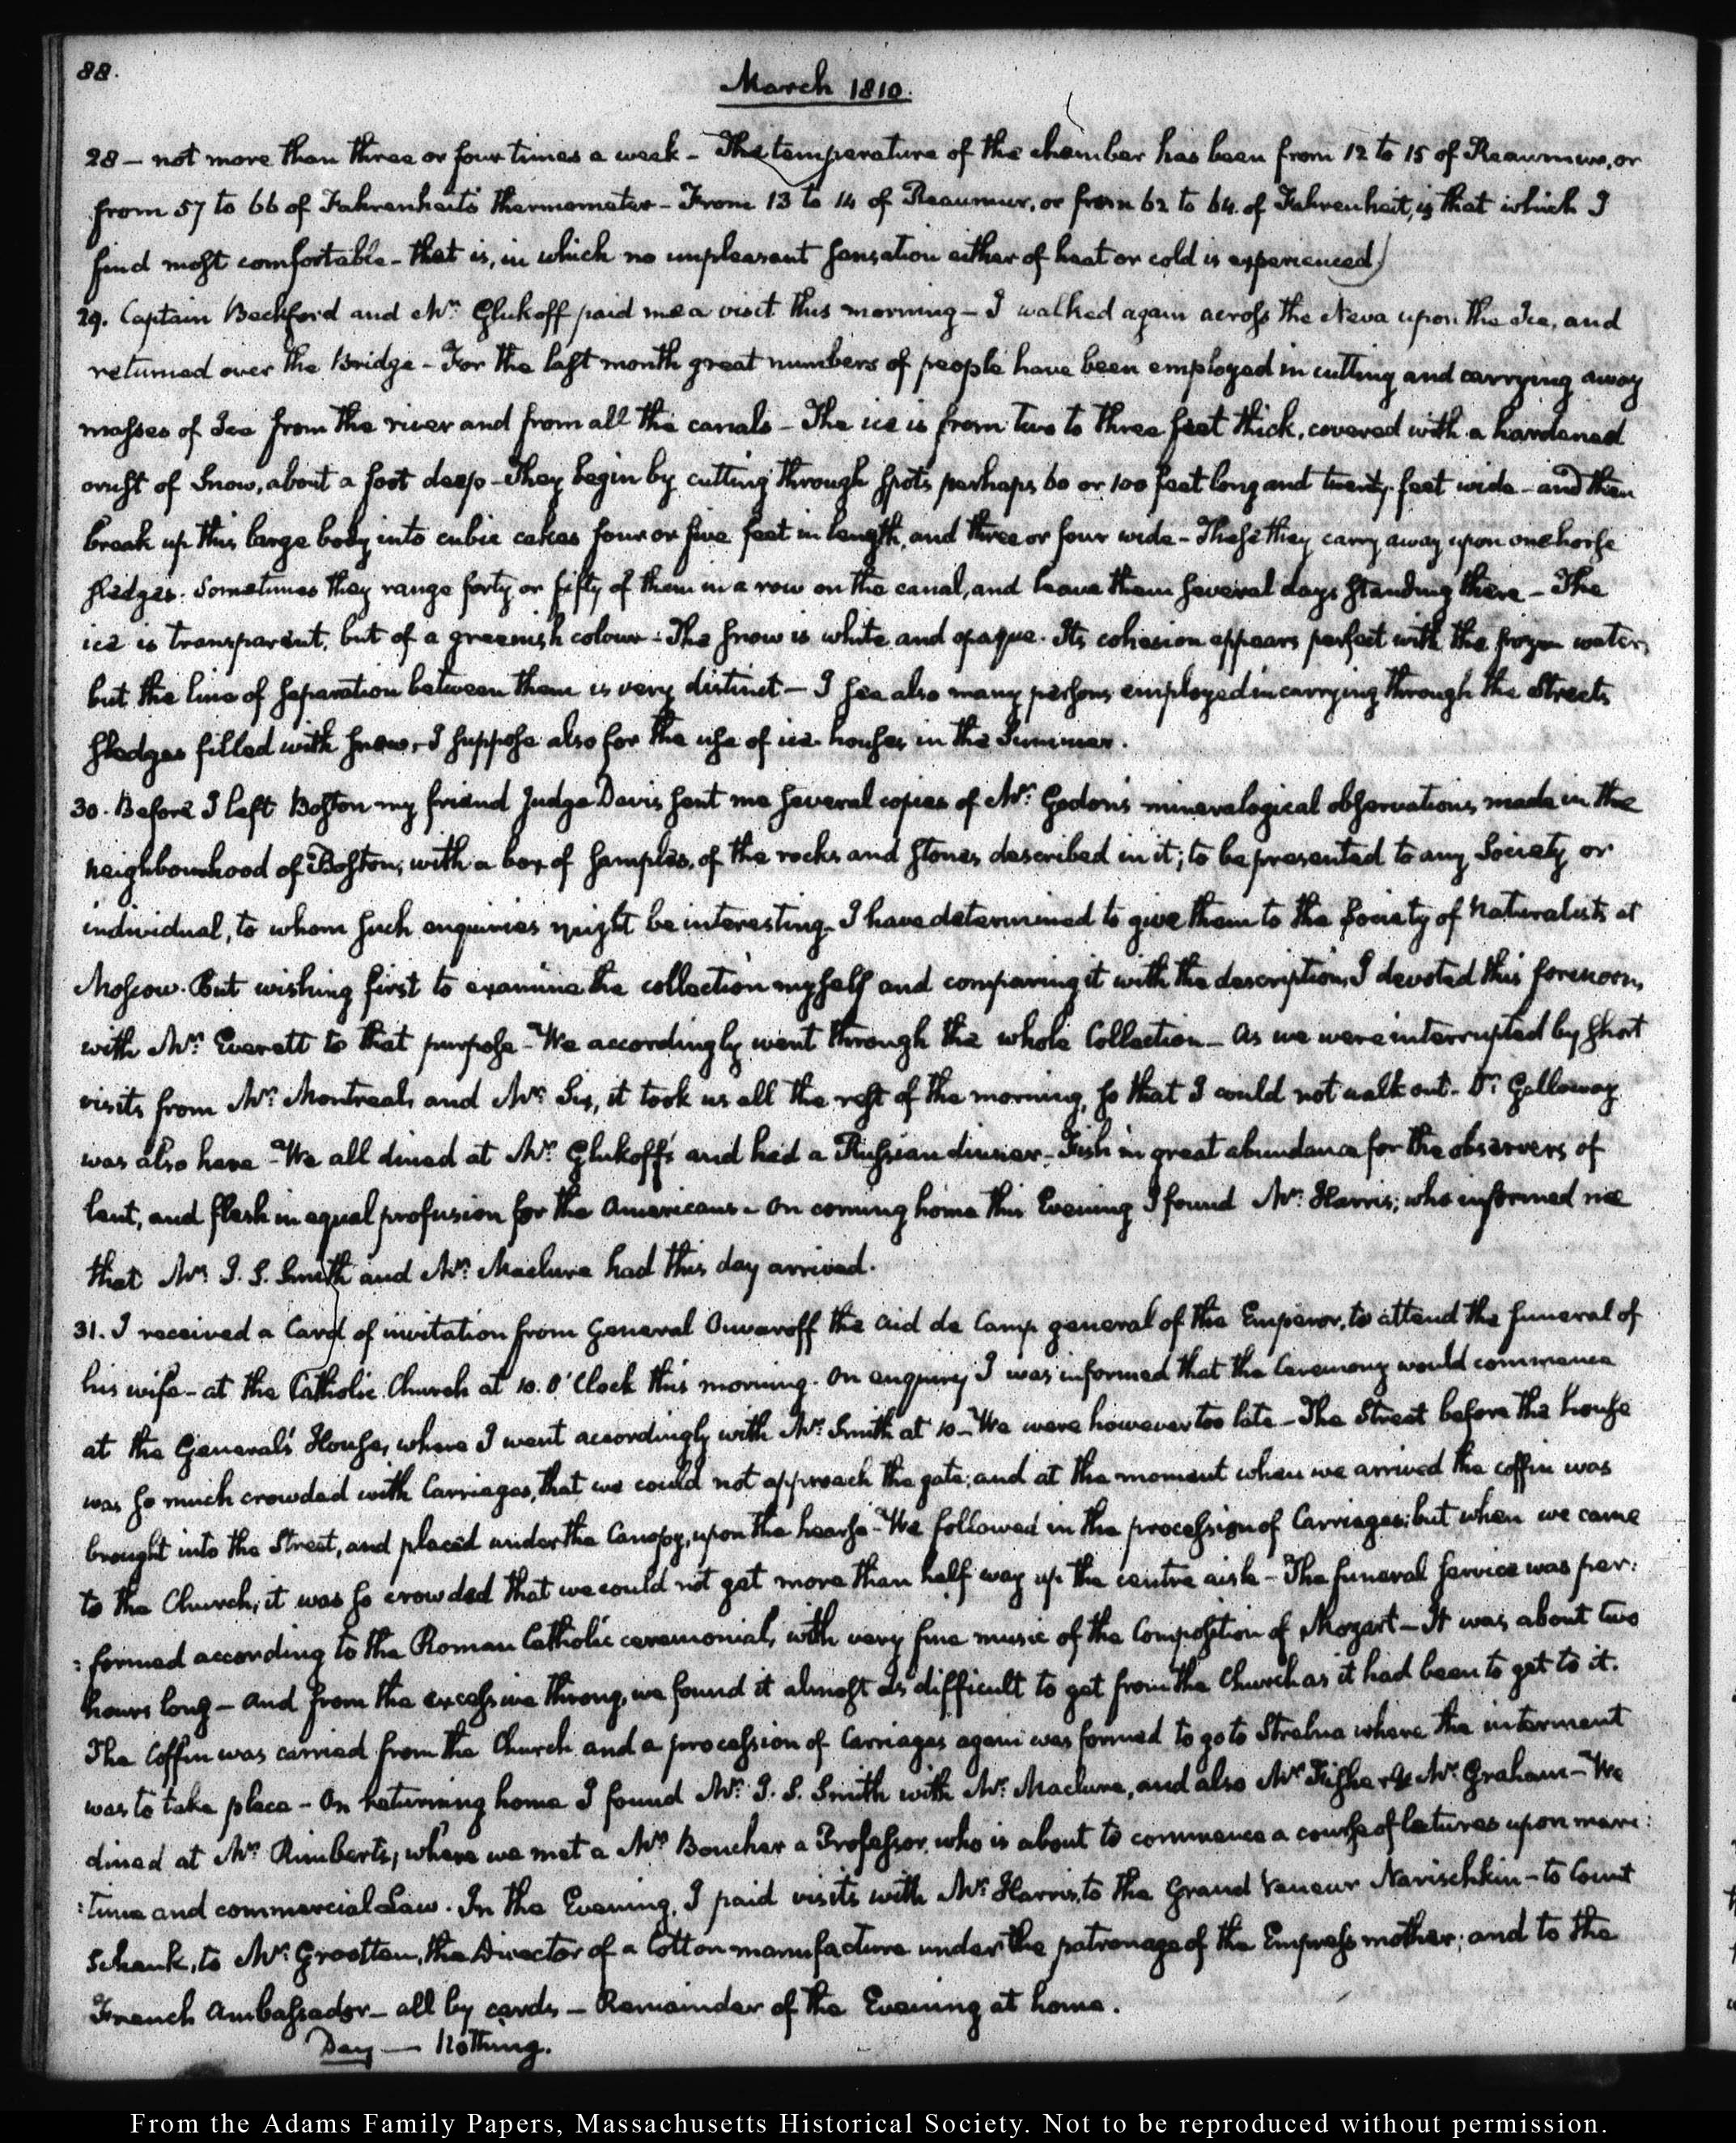 88.
March 1810.
28 - not more than three or four times a week - The temperature of the chamber has been from 12 to 15 of Reaumur, or
from 57 to 66 of Fahrenheit's thermometer - From 13 to 14 of Reaumur, or from 62 to 64 of Fahrenheit, is that which I
find most comfortable - that is, in which no unpleasant sensation either of heat or cold is experienced)
29. Captain Beckford and Mr. Glukoff paid me a visit this morning - I walked again across the Neva upon the Ice, and
returned over the Bridge - For the last month great numbers of people have been employed in cutting and carrying away
masses of Ice from the river and from all the canals - The ice is from two to three feet thick, covered with a hardened
crust of Snow, about a foot deep - They begin by cutting through spots perhaps 60 or 100 feet long and twenty feet wide - and then
break up this large body into cubic cakes four or five feet in length, and three or four wide - These they carry away upon one horse
sledges. Sometimes they range forty or fifty of them in a row on the canal, and leave them several days standing there - The
ice is transparent, but of a greenish colour - The snow is white and opaque. Its cohesion appears perfect with the frozen water,
but the line of separation between them is very distinct - I see also many persons employed in carrying through the Streets
sledges filled with snow, I suppose also for the use of ice houses in the Summer.
30. Before I left Boston my friend Judge Davis sent me several copies of Mr. Godon's mineralogical observations, made in the
neighbourhood of Boston, with a box of samples, of the rocks and stones described in it; to be presented to any Society or
individual, to whom such enquiries might be interesting. I have determined to give them to the Society of Naturalists at
Moscow. But wishing first to examine the collection myself and comparing it with the descriptions, I devoted this forenoon,
with Mr. Everett to that purpose - We accordingly went through the whole Collection - As we were interrupted by short
visits from Mr. Montreal, and Mr. Six, it took us all the rest of the morning, so that I could not walk out. Dr. Galloway
was also here - We all dined at Mr. Glukoff's and had a Russian dinner - Fish in great abundance for the observers of
lent, and flesh in equal profusion for the Americans - On coming home this Evening I found Mr. Harris; who informed me
that Mr. J. S. Smith and Mr. Maclure had this day arrived.
31. I received a Card of invitation from General Ouwaroff the Aid de Camp general of the Emperor, to attend the funeral of
his wife - at the Catholic Church at 10. O'Clock this morning. On enquiry I was informed that the Ceremony would commence
at the General's House, where I went accordingly with Mr. Smith at 10 - We were however too late - The Street before the house
was so much crowded with Carriages, that we could not approach the gate; and at the moment when we arrived the coffin was
brought into the Street, and placed under the Canopy, upon the hearse - We followed in the procession of Carriages; but when we came
to the Church, it was so crowded that we could not get more than half way up the centre aisle - The funeral service was per:
:formed according to the Roman Catholic ceremonial, with very fine music of the Composition of Mozart - It was about two
hours long - and from the excessive throng, we found it almost as difficult to get from the Church as it had been to get to it.
The Coffin was carried from the Church and a procession of Carriages again was formed to go to Strelna where the interment
was to take place - On returning home I found Mr. J. S. Smith with Mr. Maclure, and also Mr. Fisher & Mr. Graham - We
dined at Mr. Rimbert's, where we met a Mr. Boucher a Professor, who is about to commence a course of lectures upon mari:
:time and commercial Law. In the Evening, I paid visits with Mr. Harris, to the Grand Veneur Narischkin - to Count
Schenk, to Mr. Grootten, the Director of a Cotton manufacture under the patronage of the Empress mother; and to the
French Ambassador - all by cards - Remainder of the Evening at home.
Day - Nothing.
From the Adams Family Papers, Massachusetts Historical Society. Not to be reproduced without permission.